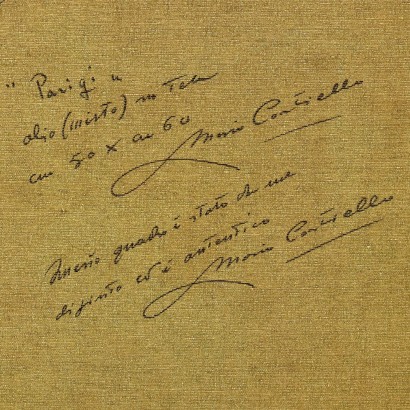 "Parigi"
olio (misto) su tela
cm 50 x cm 60
Mario Contiello
Questo quadro è stato da me
dipinto ed è autentico
Mario Contiello